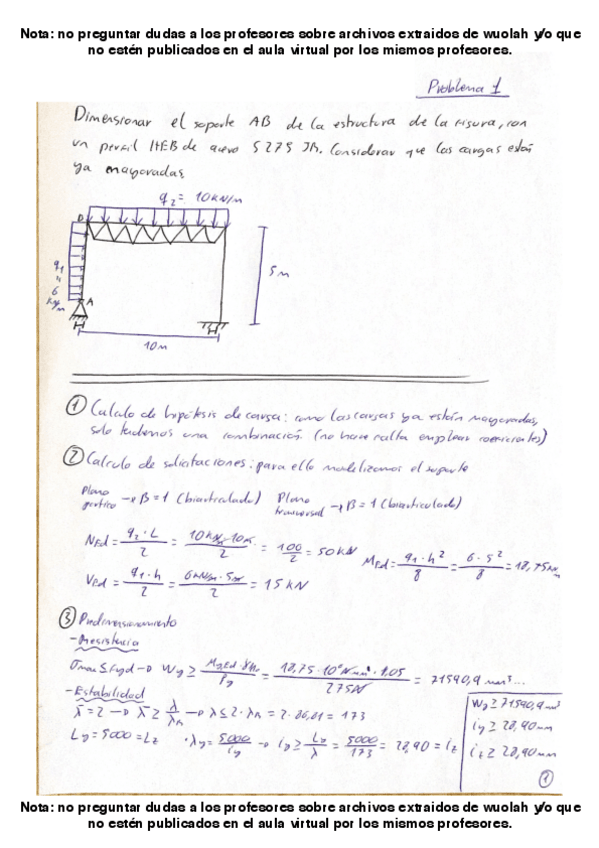 Nota: no preguntar dudas a los profesores sobre archivos extraidos de wuolah y/o que
no estén publicados en el aula virtual por los mismos profesores.
Problema 1
Dimensionar el soporte AB de la estructura de la figura, con
un perfil HEB de acero S 275 JR. Considerar que las cargas están
ya mayoradas
q2 = 10 kN/m
B
q1 = 6 kN/m
A
5 m
10 m
① Calculo de hipótesis de carga: como las cargas ya están mayoradas,
solo tendremos una combinación. (no hace falta emplear coeficientes)
② Calculo de solicitaciones: para ello modelizamos el soporte
Plano portico → β = 1 (biarticulado) Plano trasversal → β = 1 (biarticulado)
NEd = q2 · L / 2 = 10 kN/m · 10 m / 2 = 100 / 2 = 50 kN
MEd = q1 · h² / 8 = 6 · 5² / 8 = 18,75 kN
VEd = q1 · h / 2 = 6 kN/m · 5 m / 2 = 15 kN
③ Predimensionamiento
- Resistencia
σmax ≤ fyd → Wy ≥ MyEd · γM0 / fy = 18,75 · 10⁶ Nmm · 1,05 / 275 N = 71590,9 mm³...
- Estabilidad
λ̄ = 2 → λ̄ ≥ λ / λR → λ ≤ 2 · λR = 2 · 86,81 = 173
Ly = 5000 = Lz · λy = 5000 / iy → iy ≥ Ly / λ = 5000 / 173 = 28,90 = iz
Wy ≥ 71590,9 mm³
iy ≥ 28,90 mm
iz ≥ 28,90 mm
①
Nota: no preguntar dudas a los profesores sobre archivos extraidos de wuolah y/o que
no estén publicados en el aula virtual por los mismos profesores.